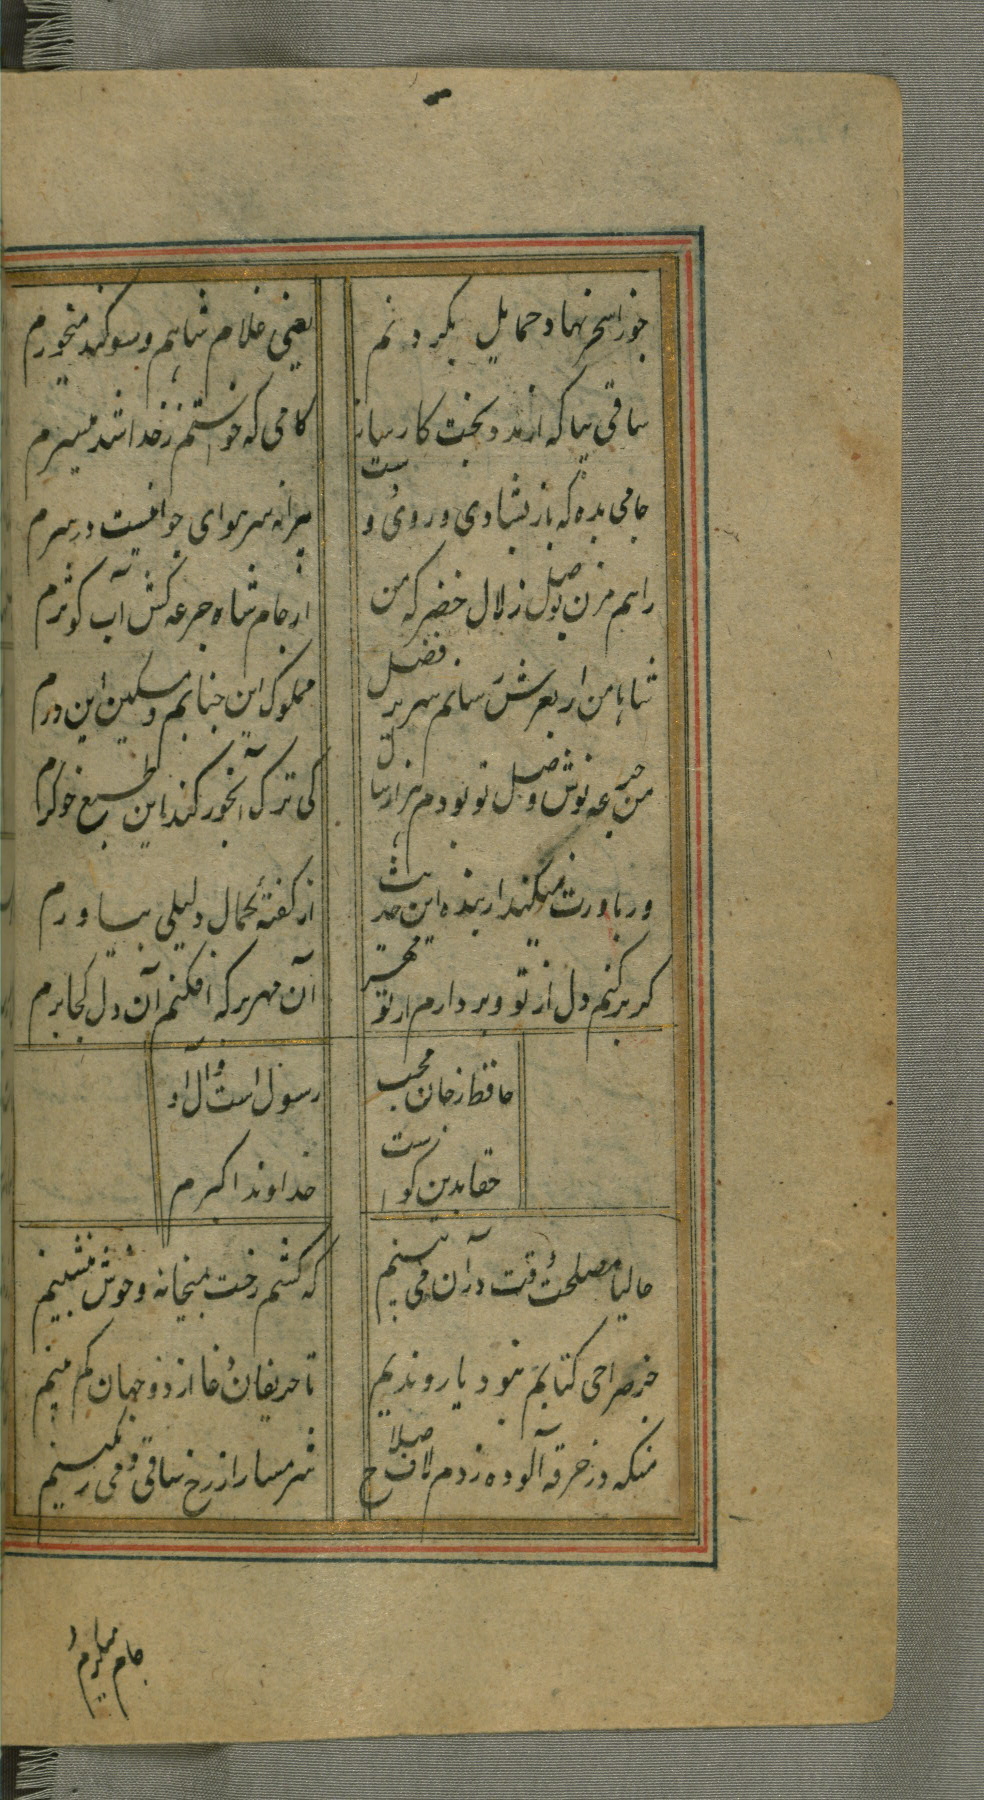 جوزا سحر نهاد حمایل بگردنم یعنی غلام شاهم و سوگند میخورم
ساقی بیا که از مدد بخت کارساز کامی که خواستم ز خدا شد میسرم
جامی بده که باز بشادی روی دوست پیرانه سر هوای جوانیست در سرم
راهم مزن بوصل زلال خضر که من از جام شاه جرعه کش آب کوثرم
شاها من ار بعرش رسانم سریر فضل مملوک این جنابم و مسکین این درم
من جرعه نوش وصل تو بودم هزار سال کی ترک آبخور کند این طبع خوگرم
ور باورت نمیکند از بنده این حدیث از گفتهٔ کمال دلیلی بیاورم
گر برکنم دل از تو و بردارم از تو مهر آن مهر بر که افکنم آن دل کجا برم
حافظ ز جان محب رسول است و آل او
حقا بدین گواست خداوند اکبرم
حالیا مصلحت وقت در آن می بینم که کشم رخت بمیخانه و خوش بنشینم
جز صراحی و کتابم نبود یار و ندیم تا حریفان دغا را ز جهان کم بینم
منکه در خرقه آلوده زدم لاف صلاح شرمسار از رخ ساقی و می رنگینم
جام میگیرم